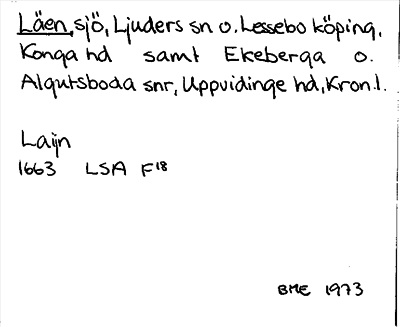 Läen, sjö, Ljuders sn o. Lessebo köping,
Konga hd samt Ekeberga o.
Algutsboda snr, Uppvidinge hd, Kron.l.
Laijn
1663 LSA F18
BME 1973